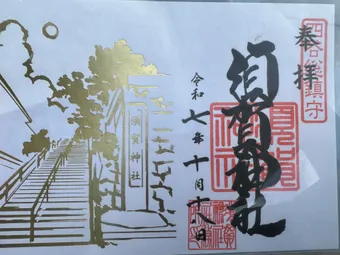 四谷総鎮守
奉拝
須賀神社
令和七年十月十八日
須賀神社